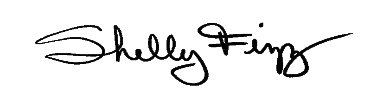 Shelly Finzy